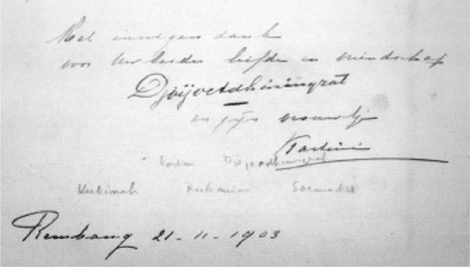 Met innigen dank
voor Uw beider liefde en vriendschap
Djojoadhiningrat
en zijn vrouwtje
Kartini
Kartini Djojoadhiningrat
Kardinah Roekmini Soematri
Rembang 21-11-1903